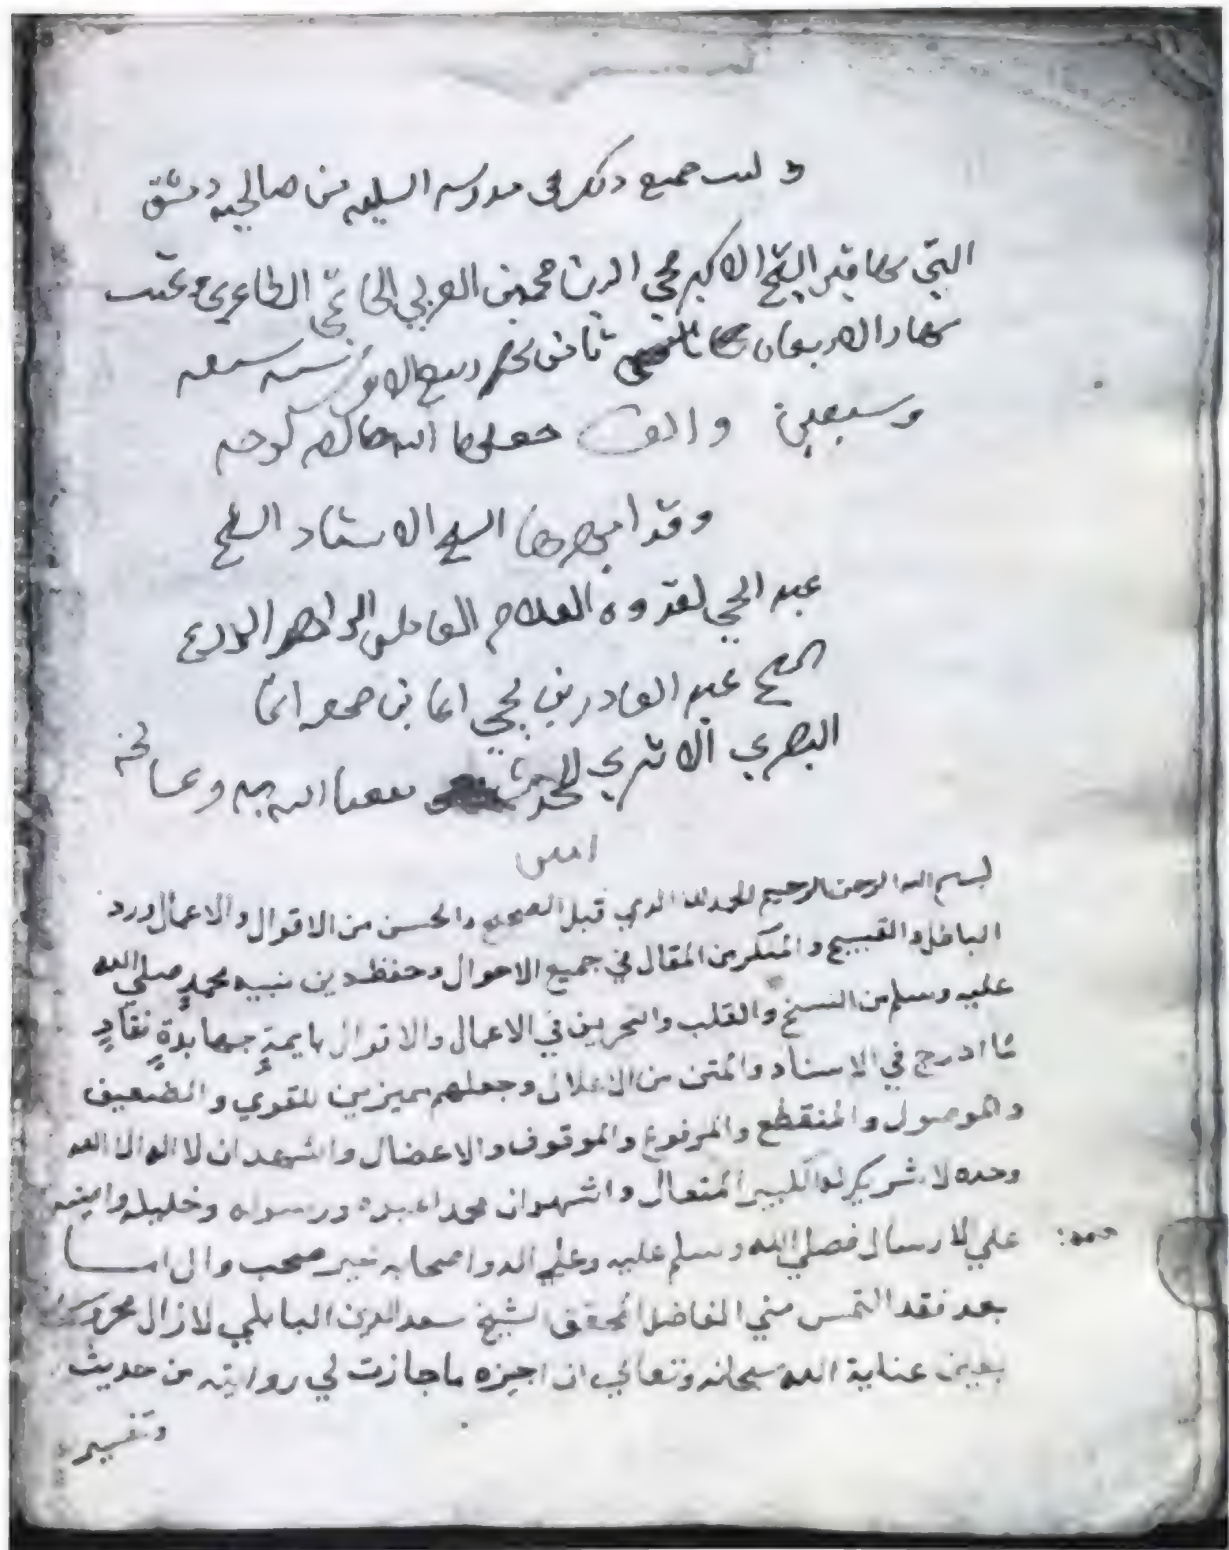 وكتب جميع ذلك في مدرسة السليميه من صالحية دمشق
التي بها قبر الشيخ الاكبر محي الدين محمد بن العربي الحاتمي الطاءي وتمت
نهار الاربعاء ثامن ربيع الاول سنه سبعه
وسبعين والف جعلها الله خالصه لوجهه
وقد اجزت بها الشيخ الاستاد الشيخ
عبد الحي لقدوة العلام العامل الزاهد الورع
الشيخ عبد القادر بن يحيى
البصري الاثري نفعنا الله به وعامله
امين
بسم الله الرحمن الرحيم الحمد لله الذي قبل الصحيح والحسن من الاقوال والاعمال ورد
الباطل والقبيح والمنكر من المقال في جميع الاحوال وحفظ دين نبيه محمد صلى الله
عليه وسلم من النسخ والقلب والتحريف في الاعمال والاقوال بايمةٍ جهابذةٍ نقادٍ
ما ادرج في الاسناد والمتن من الاعلال وجعلهم مميزين للقوي والضعيف
والموصول والمنقطع والمرفوع والموقوف والاعضال واشهد ان لا اله الا الله
وحده لا شريك له الكبير المتعال واشهد ان محمدا عبده ورسوله وخليله وامينه
علي الارسال فصلي الله وسلم عليه وعلي اله واصحابه خير صحب وال اما
بعد فقد التمس مني الفاضل المحقق الشيخ سعد الدين البابلي لازال محروسا
بعين عناية الله سبحانه وتعالي ان اجيزه ما جازت لي روايته من حديث
وتفسير